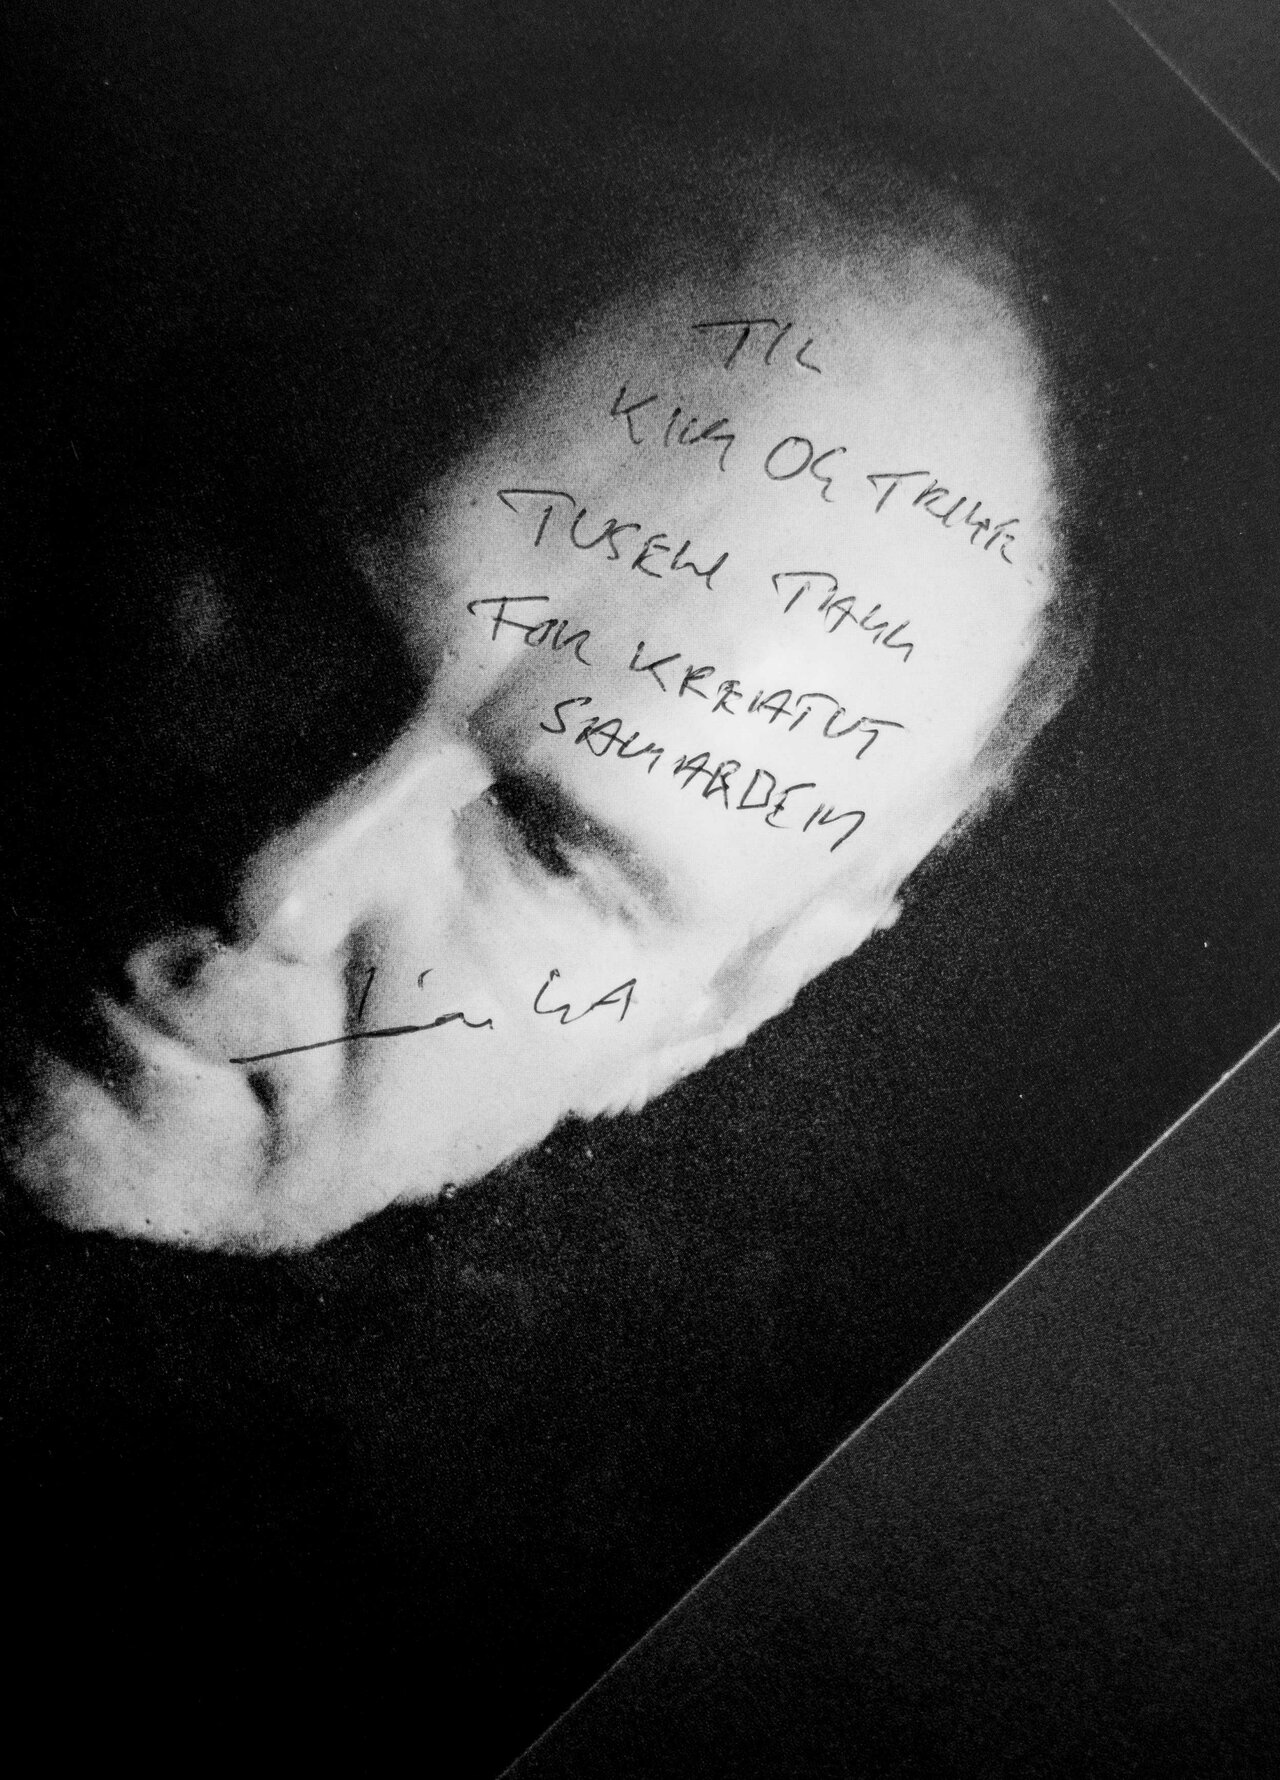 TIL
KIM OG TRINE
TUSEN TAKK
FOR KREATIVT
SAMARBEID